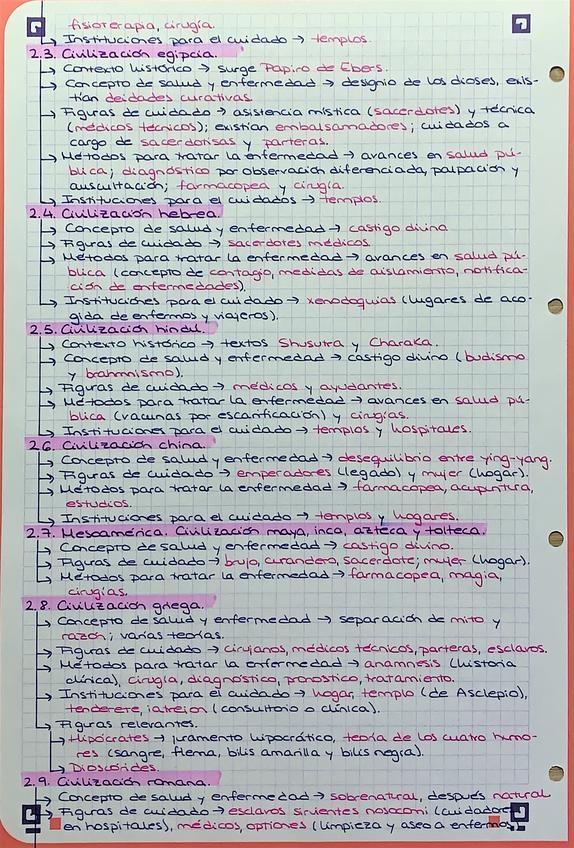 fisioterapia, cirugía.
→ Instituciones para el cuidado → templos.
2.3. Civilización egipcia.
→ Contexto histórico → surge Papiro de Ebers.
→ Concepto de salud y enfermedad → designio de los dioses, exis-
tían deidades curativas.
→ Figuras de cuidado → asistencia mística (sacerdotes) y técnica
(médicos técnicos); existían embalsamadores; cuidados a
cargo de sacerdotisas y parteras.
→ Métodos para tratar la enfermedad → avances en salud pú-
blica; diagnóstico por observación diferenciada, palpación y
auscultación; farmacopea y cirugía.
→ Instituciones para el cuidados → templos.
2.4. Civilización hebrea.
→ Concepto de salud y enfermedad → castigo divino
→ Figuras de cuidado → sacerdotes médicos.
→ Métodos para tratar la enfermedad → avances en salud pú-
blica (concepto de contagio, medidas de aislamiento, notifica-
ción de enfermedades).
→ Instituciones para el cuidado → xenodoquias (lugares de aco-
gida de enfermos y viajeros).
2.5. Civilización hindú.
→ Contexto histórico → textos Shusutra y Charaka.
→ Concepto de salud y enfermedad → castigo divino (budismo
y brahmnismo).
→ Figuras de cuidado → médicos y ayudantes.
→ Métodos para tratar la enfermedad → avances en salud pú-
blica (vacunas por escarificación) y cirugías.
→ Instituciones para el cuidado → templos y hospitales.
2.6. Civilización china.
→ Concepto de salud y enfermedad → desequilibrio entre ying-yang.
→ Figuras de cuidado → emperadores (legado) y mujer (hogar).
→ Métodos para tratar la enfermedad → farmacopea, acupuntura,
estudios.
→ Instituciones para el cuidado → templos y hogares.
2.7. Mesoamérica. Civilización maya, inca, azteca y tolteca.
→ Concepto de salud y enfermedad → castigo divino.
→ Figuras de cuidado → brujo, curandero, sacerdote; mujer (hogar).
→ Métodos para tratar la enfermedad → farmacopea, magia,
cirugías.
2.8. Civilización griega.
→ Concepto de salud y enfermedad → separación de mito y
razón; varias teorías.
→ Figuras de cuidado → cirujanos, médicos técnicos, parteras, esclavos.
→ Métodos para tratar la enfermedad → anamnesis (historia
clínica), cirugía, diagnóstico, pronóstico, tratamiento.
→ Instituciones para el cuidado → hogar, templo (de Asclepio),
tenderete, iatreion (consultorio o clínica).
→ Figuras relevantes.
→ Hipócrates → juramento hipocrático, teoría de los cuatro humo-
res (sangre, flema, bilis amarilla y bilis negra).
→ Dioscórides.
2.9. Civilización romana.
→ Concepto de salud y enfermedad → sobrenatural, después natural
→ Figuras de cuidado → esclavos sirvientes nosocomi (cuidadores
en hospitales), médicos, optiones (limpieza y aseo a enfermos),